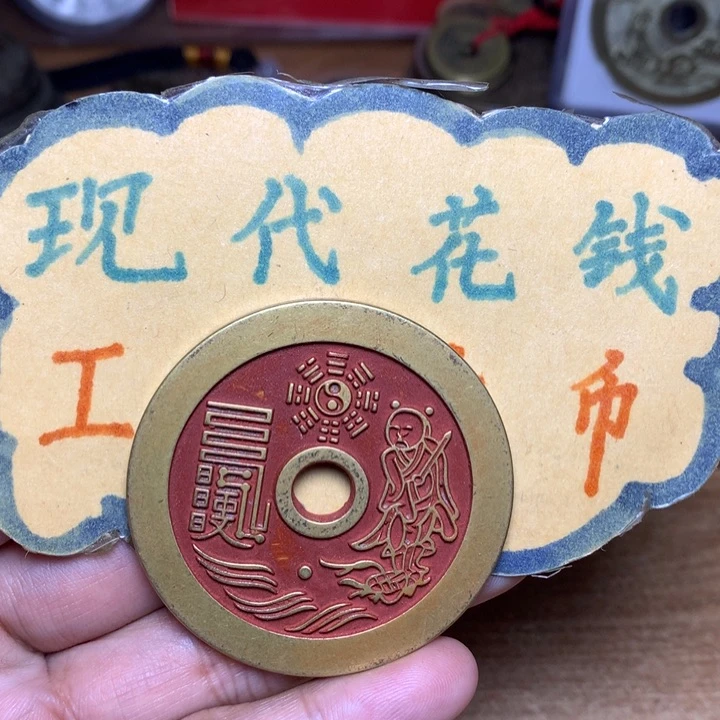 现代花钱
工 币